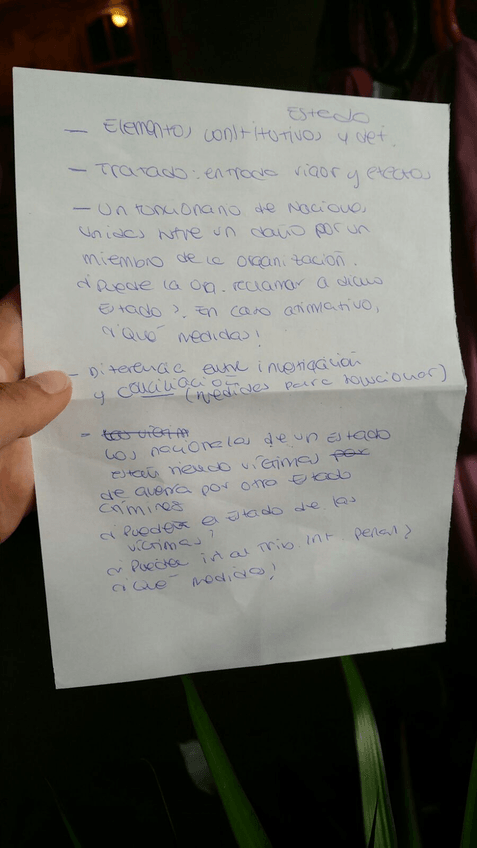 Estado
- Elementos constitutivos y def.
- Tratado: entrada vigor y efectos
- Un funcionario de Naciones
Unidas sufre un daño por un
miembro de la organización.
¿Puede la org. reclamar a dicho
Estado?. En caso afirmativo,
¿qué medidas?
- Diferencia entre investigación
y conciliación (medidas para solucionar)
- Los nacionales de un Estado
están siendo víctimas
de guerra por otro Estado
crímenes
¿Puede el Estado de las
víctimas?
¿Puede ir al Trib. Int. Penal?
¿Qué medidas?